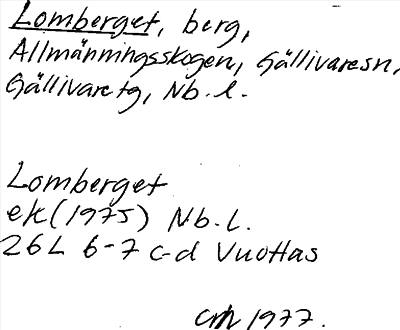 Lomberget, berg,
Allmänningsskogen, Gällivaresn,
Gällivare tg, Nb. l.
Lomberget
ek (1975) Nb. l.
26L 6-7 c-d Vuottas
1977.